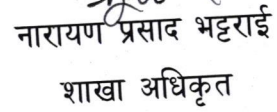 नारायण प्रसाद भट्टराई
शाखा अधिकृत